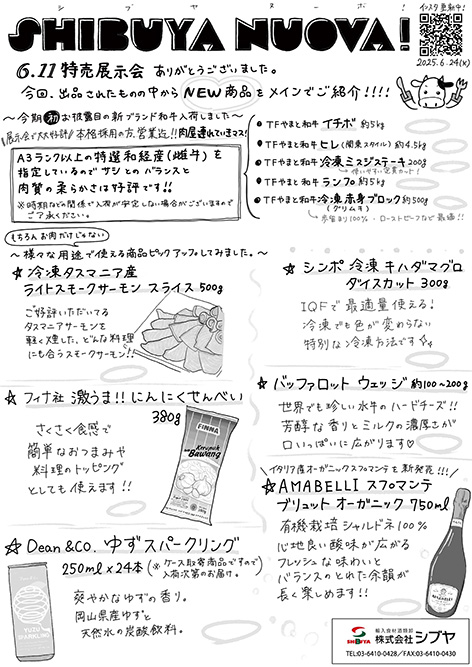 シブヤヌーボ!
SHIBUYA NUOVA!
インスタ更新中!
2025.6.24(火)
6.11 特売展示会 ありがとうございました。
今回、出品されたものの中からNEW商品をメインでご紹介!!!!
～今期㊗お披露目の新ブランド和牛入荷しました～
《展示会で大好評》本格採用の方、営業迄!!肉屋連れていきマス!
A3ランク以上の特選和経産(雌牛)を
指定しているのでサシとのバランスと
肉質の柔らかさは好評です!!
※時期などの関係で入荷が安定しない場合がございますので
ご了承ください。
・TFやまと和牛 イチボ 約5kg
・TFやまと和牛 ヒレ(関東スタイル) 約4.5kg
・TFやまと和牛 冷凍ミスジステーキ 200g
→使いやすい定貫カット!
・TFやまと和牛 ランプ 約5kg
・TFやまと和牛 冷凍赤身ブロック 約500g
(クリムネ)
→歩留まり100%・ローストビーフなど最適!!
もちろんお肉だけじゃない
～様々な用途で使える商品ピックアップしてみました。～
☆冷凍タスマニア産
ライトスモークサーモン スライス 500g
ご好評いただいてる
タスマニアサーモンを
軽く燻した、どんな料理
にも合うスモークサーモン!!
☆シンポ 冷凍 キハダマグロ
ダイスカット 300g
IQFで最適量使える!
冷凍でも色が変わらない
特別な冷凍方法です
☆フィナ社 激うま!!にんにくせんべい
380g
さくさく食感で
簡単なおつまみや
料理のトッピング
としても使えます!!
FINNA
Kerupuk
Bawang
☆バッファロット ウェッジ 約100~200g
世界でも珍しい水牛のハードチーズ!!
芳醇な香りとミルクの濃厚さが
口いっぱいに広がります♡
\イタリア産オーガニックスプマンテも新発売!!!/
☆AMABELLI スプマンテ
ブリュット オーガニック 750ml
有機栽培シャルドネ100%
心地良い酸味が広がる
フレッシュな味わいと
バランスのとれた余韻が
長く楽しめます!!
☆Dean &Co. ゆずスパークリング
250ml×24本(※ケース取寄商品ですので
入荷次第のお届け。)
爽やかなゆずの香り。
岡山県産ゆずと
天然水の炭酸飲料。
YUZU
SPARKLING
SHIBUYA
輸入食材酒類卸
株式会社シブヤ
TEL:03-6410-0428/FAX:03-6410-0430